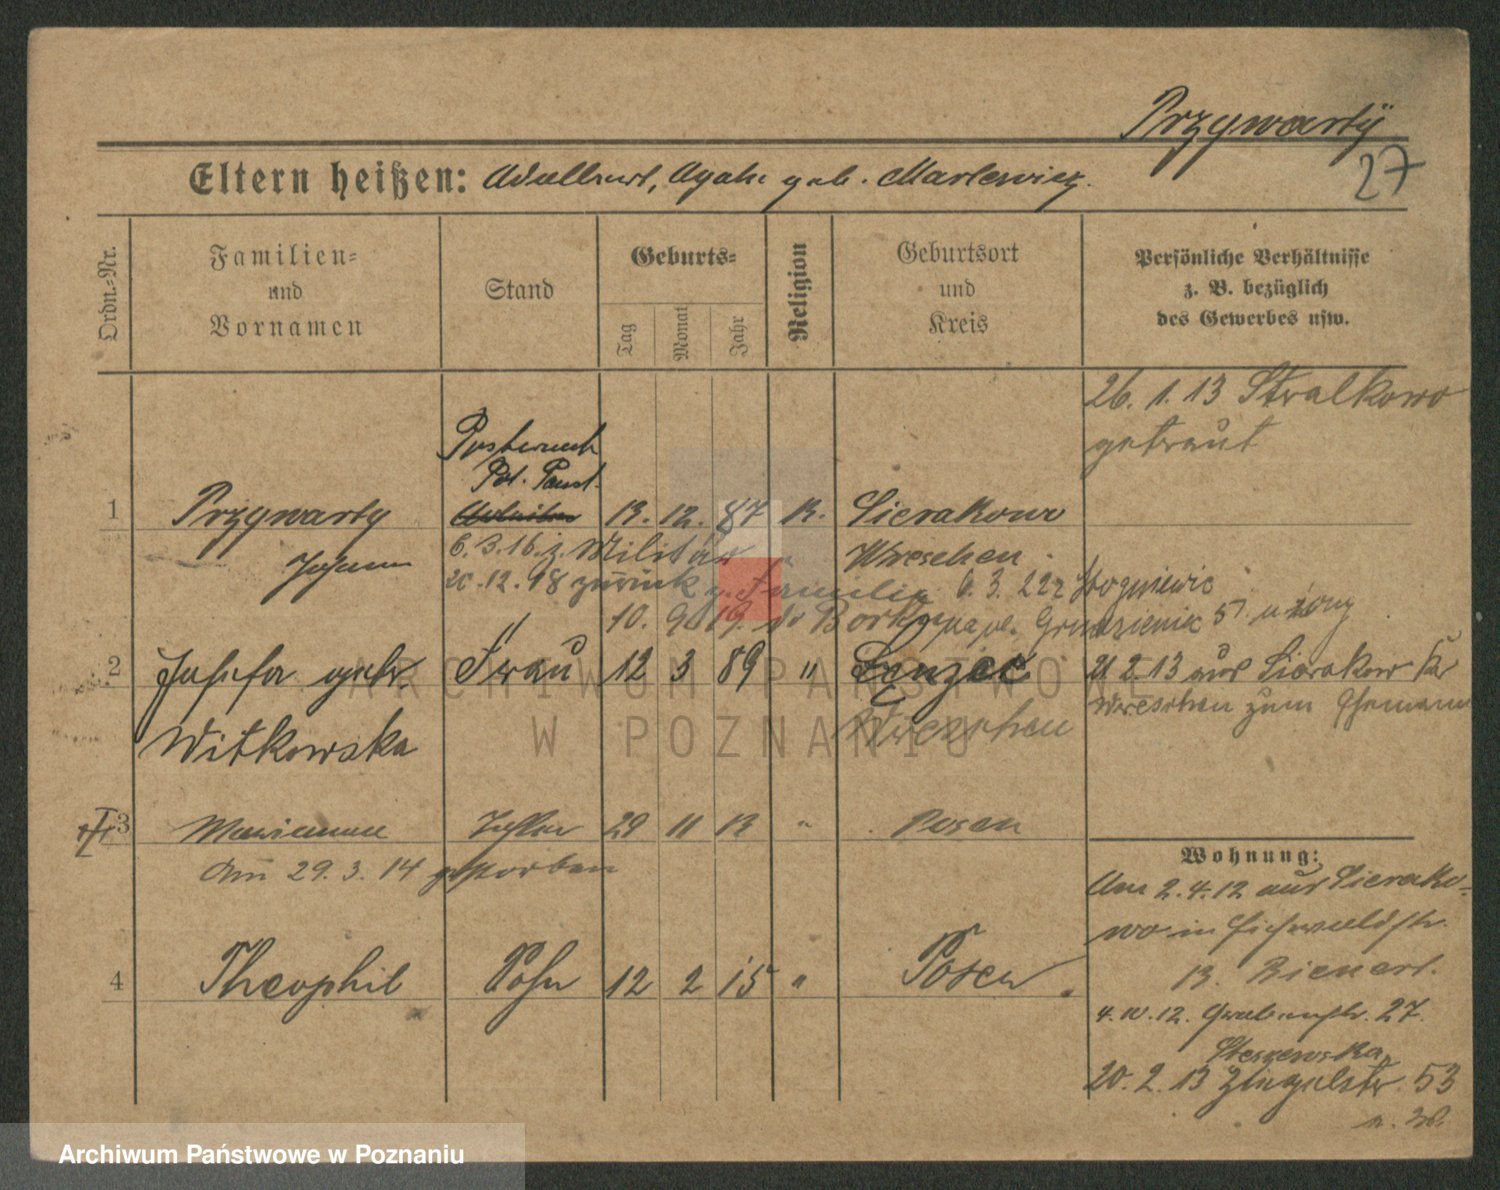 Przywarty
27
Eltern heißen: Adalbert, Agathe geb. Marlewicz.
Ordn.-Nr.
Familien- und Vornamen
Stand
Geburts-
Tag
Monat
Jahr
Religion
Geburtsort und Kreis
Persönliche Verhältnisse
z. B. bezüglich
des Gewerbes usw.
26. 1. 13 Stralkowo
getraut
1 Przywarty 13. 12. 87 K. Sierakowo
Johann
Wreschen
6. 3. 16. z. Militär
20. 12. 18 zurück z. Familie 6. 3. 22
10. 9. 19.
2 Josefa geb. Frau 12 3 89 "
Witkowska
Wreschen
21. 2. 13 aus Sierakowo Kr
Wreschen zum Ehemann
3 Marianna Tochter 29 11 13 " Posen
Am 29. 3. 14 gestorben
4 Theophil Sohn 12 2 15 " Posen
Wohnung:
Am 2. 4. 12 aus Sierako-
wo in Eichwaldstr.
13. Bienert.
4. 10. 12. Grabenstr. 27.
20. 2. 13 Ziegelstr. 53
ARCHIWUM PAŃSTWOWE
W POZNANIU
Archiwum Państwowe w Poznaniu